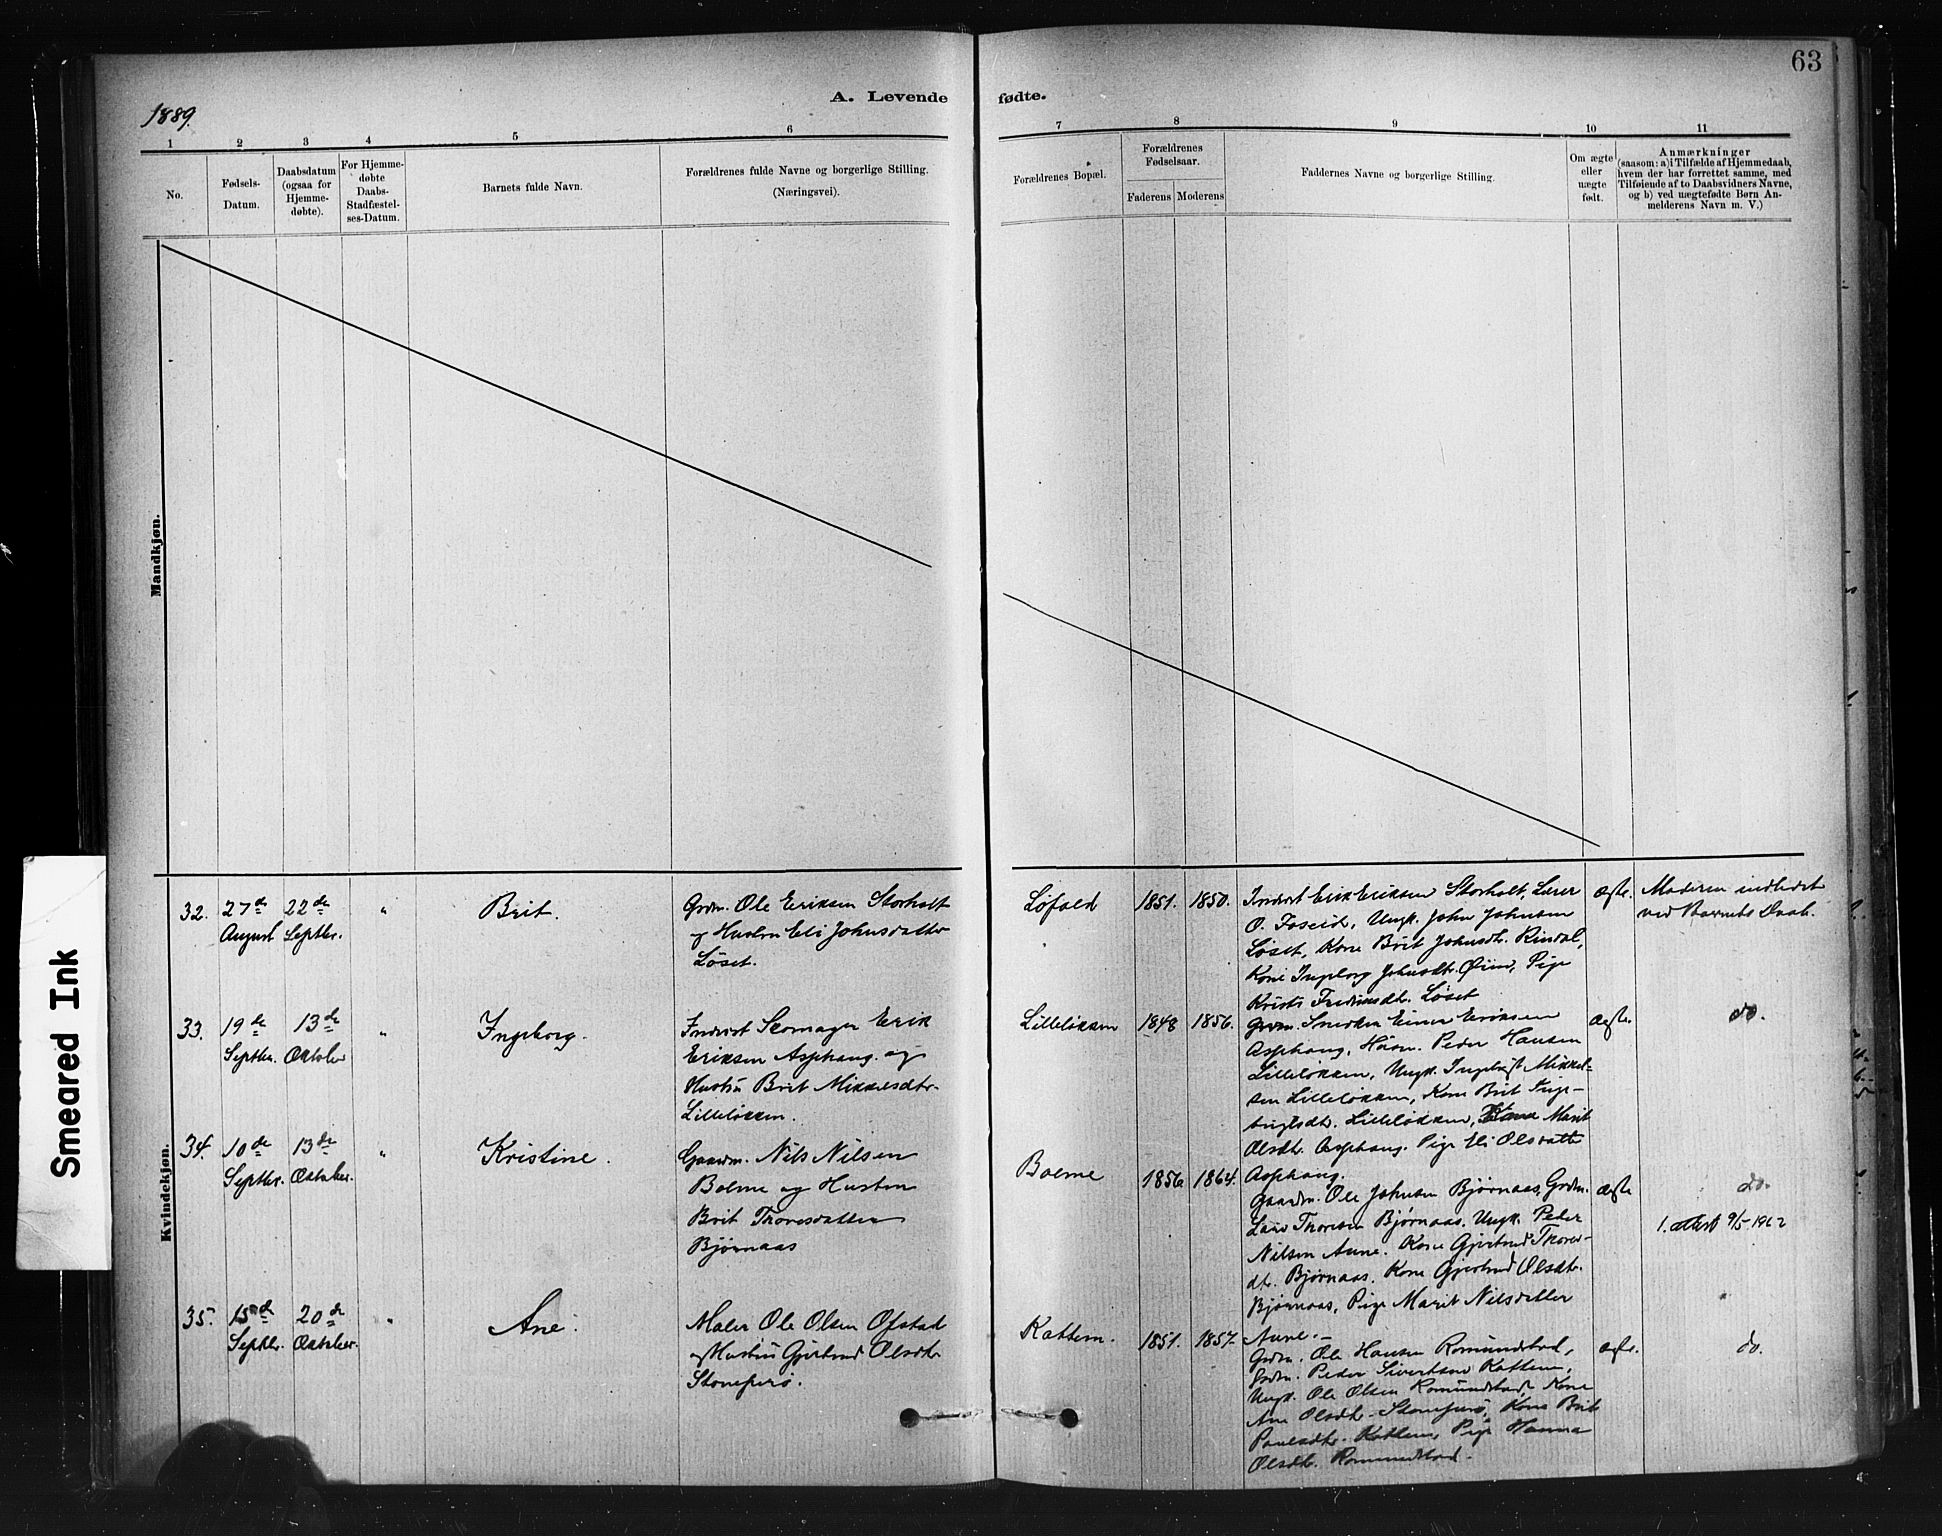 63
A. Levende fødte.
1889.
1 2 3 4 5 6 7 8 9 10 11
No.
Fødsels-
Datum.
Daabsdatum
(ogsaa for
Hjemme-
døbte).
For Hjemme-
døbte
Daabs-
Stadfæstel-
ses-Datum.
Barnets fulde Navn.
Forældrenes fulde Navne og borgerlige Stilling.
(Næringsvei).
Forældrenes Bopæl.
Forældrenes
Fødselsaar.
Faderens Moderens
Faddernes Navne og borgerlige Stilling.
Om ægte
eller
uægte
født.
Anmærkninger
(saasom: a) i Tilfælde af Hjemmedaab,
hvem der har forrettet samme, med
Tilføiende af to Daabsvidners Navne,
og b) ved uægtefødte Børn An-
melderens Navn m. V.)
Mandkjøn.
Kvindekjøn.
Smeared Ink
32.
27de
August
22de
Septbr.
"
Brit.
Grdm. Ole Eriksen Storholt
og Hustru Eli Johnsdatter
Løset.
Løfald
1851. 1850.
Inderst Erik Eriksen Storholt, Lærer
O. Foseid, Ungk. John Johnsen
Løset, Kone Brit Johnsdtr. Rindal,
Kone Ingeborg Johnsdtr. Øien, Pige
Løset
ægte.
Moderen indledet
ved Barnets Daab.
33.
19de
Septbr.
13de
Oktober
"
Ingeborg.
Inderst Skomager Erik
Eriksen Asphaug og
Hustru Brit Mikkelsdtr.
Lilleløkken.
Lilleløkken
1848 1856.
Grdm. Snedker Einer Eriksen
Asphaug, Husm. Peder Hansen
Lilleløkken, Ungk. Ingebrigt Mikkel-
sen Lilleløkken, Kone Brit Inge-
brigtsdtr. Lilleløkken, Kone Marit
Olsdtr. Asphaug, Pige Eli Olsdatter
Asphaug.
ægte.
do.
34.
10de
Septbr.
13de
Oktober.
"
Kristine.
Gaardm. Nils Nilsen
Bolme og Hustru
Brit Thoresdatter
Bjørnaas
Bolme
1856 1864.
Gaardm. Ole Johnsen Bjørnaas, Grdm.
Lars Thoresen Bjørnaas, Ungk. Peder
Nilsen Aune. Kone Gjertrud Thores-
dtr. Bjørnaas, Kone Gjertrud Olsdtr.
Bjørnaas, Pige Marit Nilsdatter
Aune.
ægte
do.
1. attest 9/5-1962
35.
15de
Septbr.
20de
Oktober.
"
Ane.
Maler Ole Olsen Ofstad
og Hustru Gjertrud Olsdtr.
Kattem.
1851. 1857.
Grdm. Ole Hansen Romundstad,
Grdm. Peder Sivertsen Kattem,
Ungk. Ole Olsen Romundstad, Kone
Ane Olsdtr. Kone Brit
Paulsdtr. Kattem, Pige Hanna
Olsdtr. Romundstad.
ægte.
do.